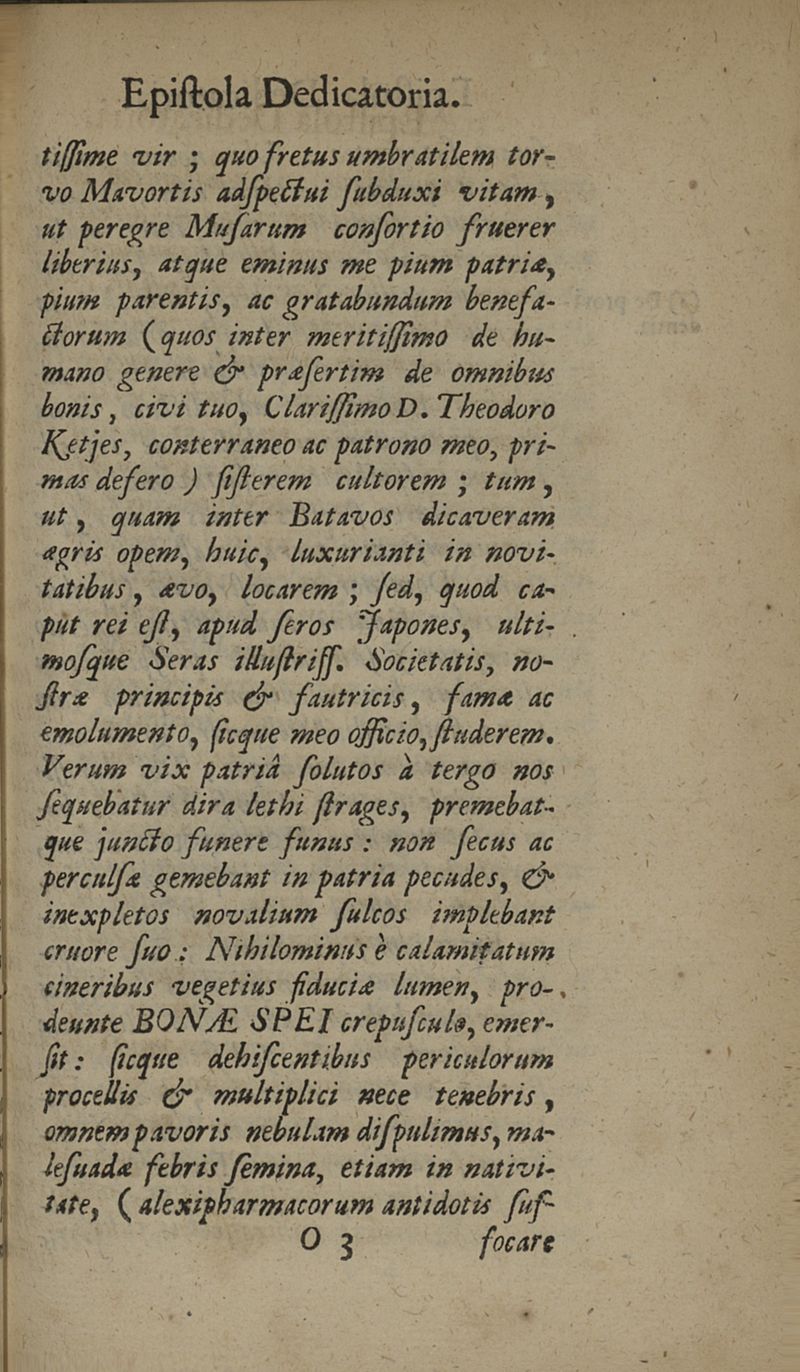 Epiſtola Dedicatoria.
tiſſime vir ; quo fretus umbratilem tor-
vo Mavortis adſpectui ſubduxi vitam,
ut peregre Muſarum conſortio fruerer
liberius, atque eminus me pium patriæ,
pium parentis, ac gratabundum benefa-
ctorum ( quos inter meritiſſimo de hu-
mano genere & præſertim de omnibus
bonis, civi tuo, Clariſſimo D. Theodoro
Ketjes, conterraneo ac patrono meo, pri-
mas defero ) ſiſterem cultorem ; tum,
ut, quam inter Batavos dicaveram
ægris opem, huic, luxurianti in novi-
tatibus, ævo, locarem ; ſed, quod ca-
put rei eſt, apud feros Japones, ulti-
moſque Seras illuſtriſſ. Societatis, no-
ſtræ principis & fautricis, famæ ac
emolumento, ſicque meo officio, ſtuderem.
Verum vix patriâ ſolutos à tergo nos
ſequebatur dira lethi ſtrages, premebat-
que juncto funere funus : non ſecus ac
perculſæ gemebant in patria pecudes, &
inexpletos novalium ſulcos implebant
cruore ſuo : Nihilominus è calamitatum
cineribus vegetius fiduciæ lumen, pro-
deunte BONÆ SPEI crepuſculo, emer-
ſit : ſicque dehiſcentibus periculorum
procellis & multiplici nece tenebris,
omnem pavoris nebulam diſpulimus, ma-
leſuadæ febris ſemina, etiam in nativi-
tate, ( alexipharmacorum antidotis ſuf-
O 3 focare